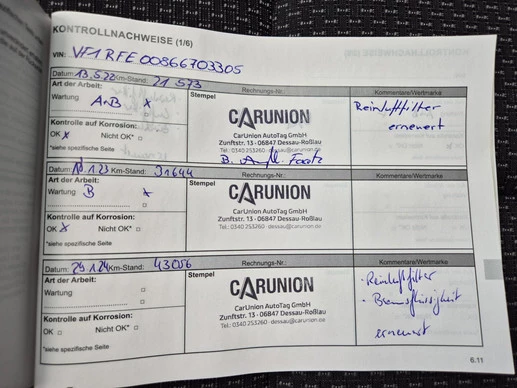 KONTROLLNACHWEISE (1/6)
VIN: VF1RFE00866703305
Datum: 13.5.22 Km-Stand: 21 573 Rechnungs-Nr.: Kommentare/Wertmarke
Art der Arbeit: Stempel
Wartung A+B x
Reinluftfilter
erneuert
Kontrolle auf Korrosion:
OK x Nicht OK* □
*siehe spezifische Seite
CARUNION
CarUnion AutoTag GmbH
Zunftstr. 13 · 06847 Dessau-Roßlau
Tel.: 0340 253260 · dessau@carunion.de
Datum: 1 23 Km-Stand: 31644 Rechnungs-Nr.: Kommentare/Wertmarke
Art der Arbeit: Stempel
Wartung B x
Kontrolle auf Korrosion:
OK x Nicht OK* □
*siehe spezifische Seite
CARUNION
CarUnion AutoTag GmbH
Zunftstr. 13 · 06847 Dessau-Roßlau
Tel.: 0340 253260 · dessau@carunion.de
Datum: 29 1 24 Km-Stand: 43056 Rechnungs-Nr.: Kommentare/Wertmarke
Art der Arbeit: Stempel
Wartung □
Kontrolle auf Korrosion:
OK □ Nicht OK* □
*siehe spezifische Seite
CARUNION
CarUnion AutoTag GmbH
Zunftstr. 13 · 06847 Dessau-Roßlau
Tel.: 0340 253260 · dessau@carunion.de
· Reinluftfilter
· Bremsflüssigkeit
erneuert
6.11